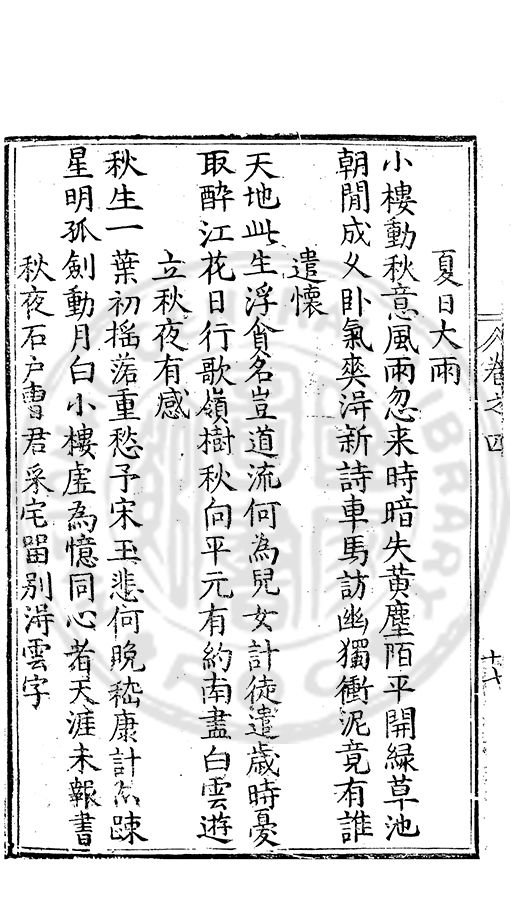 夏日大雨
小樓動秋意風雨忽来時暗失黄塵陌平開緑草池
朝閒成乆卧氣爽淂新詩車馬訪幽獨衝泥竟有誰
遣懷
天地此生浮貪名豈道流何為兒女計徒遣歳時憂
取醉江花日行歌嶺樹秋向平元有約南盡白雲遊
立秋夜有感
秋生一葉初揺落重愁予宋玉悲何晩嵇康計亦踈
星明孤劍動月白小樓虛為憶同心者天涯未報書
秋夜石户曹君采宅留别淂雲字
卷之四
十七